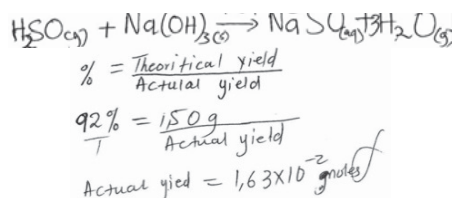 H2SO(g) + Na(OH)3(s) → NaSO(aq)+3H2O(g)
% = Theoritical yield / Actulal yield
92% / 1 = 150g / Actual yield
Actual yied = 1,63x10^-2 gmoles